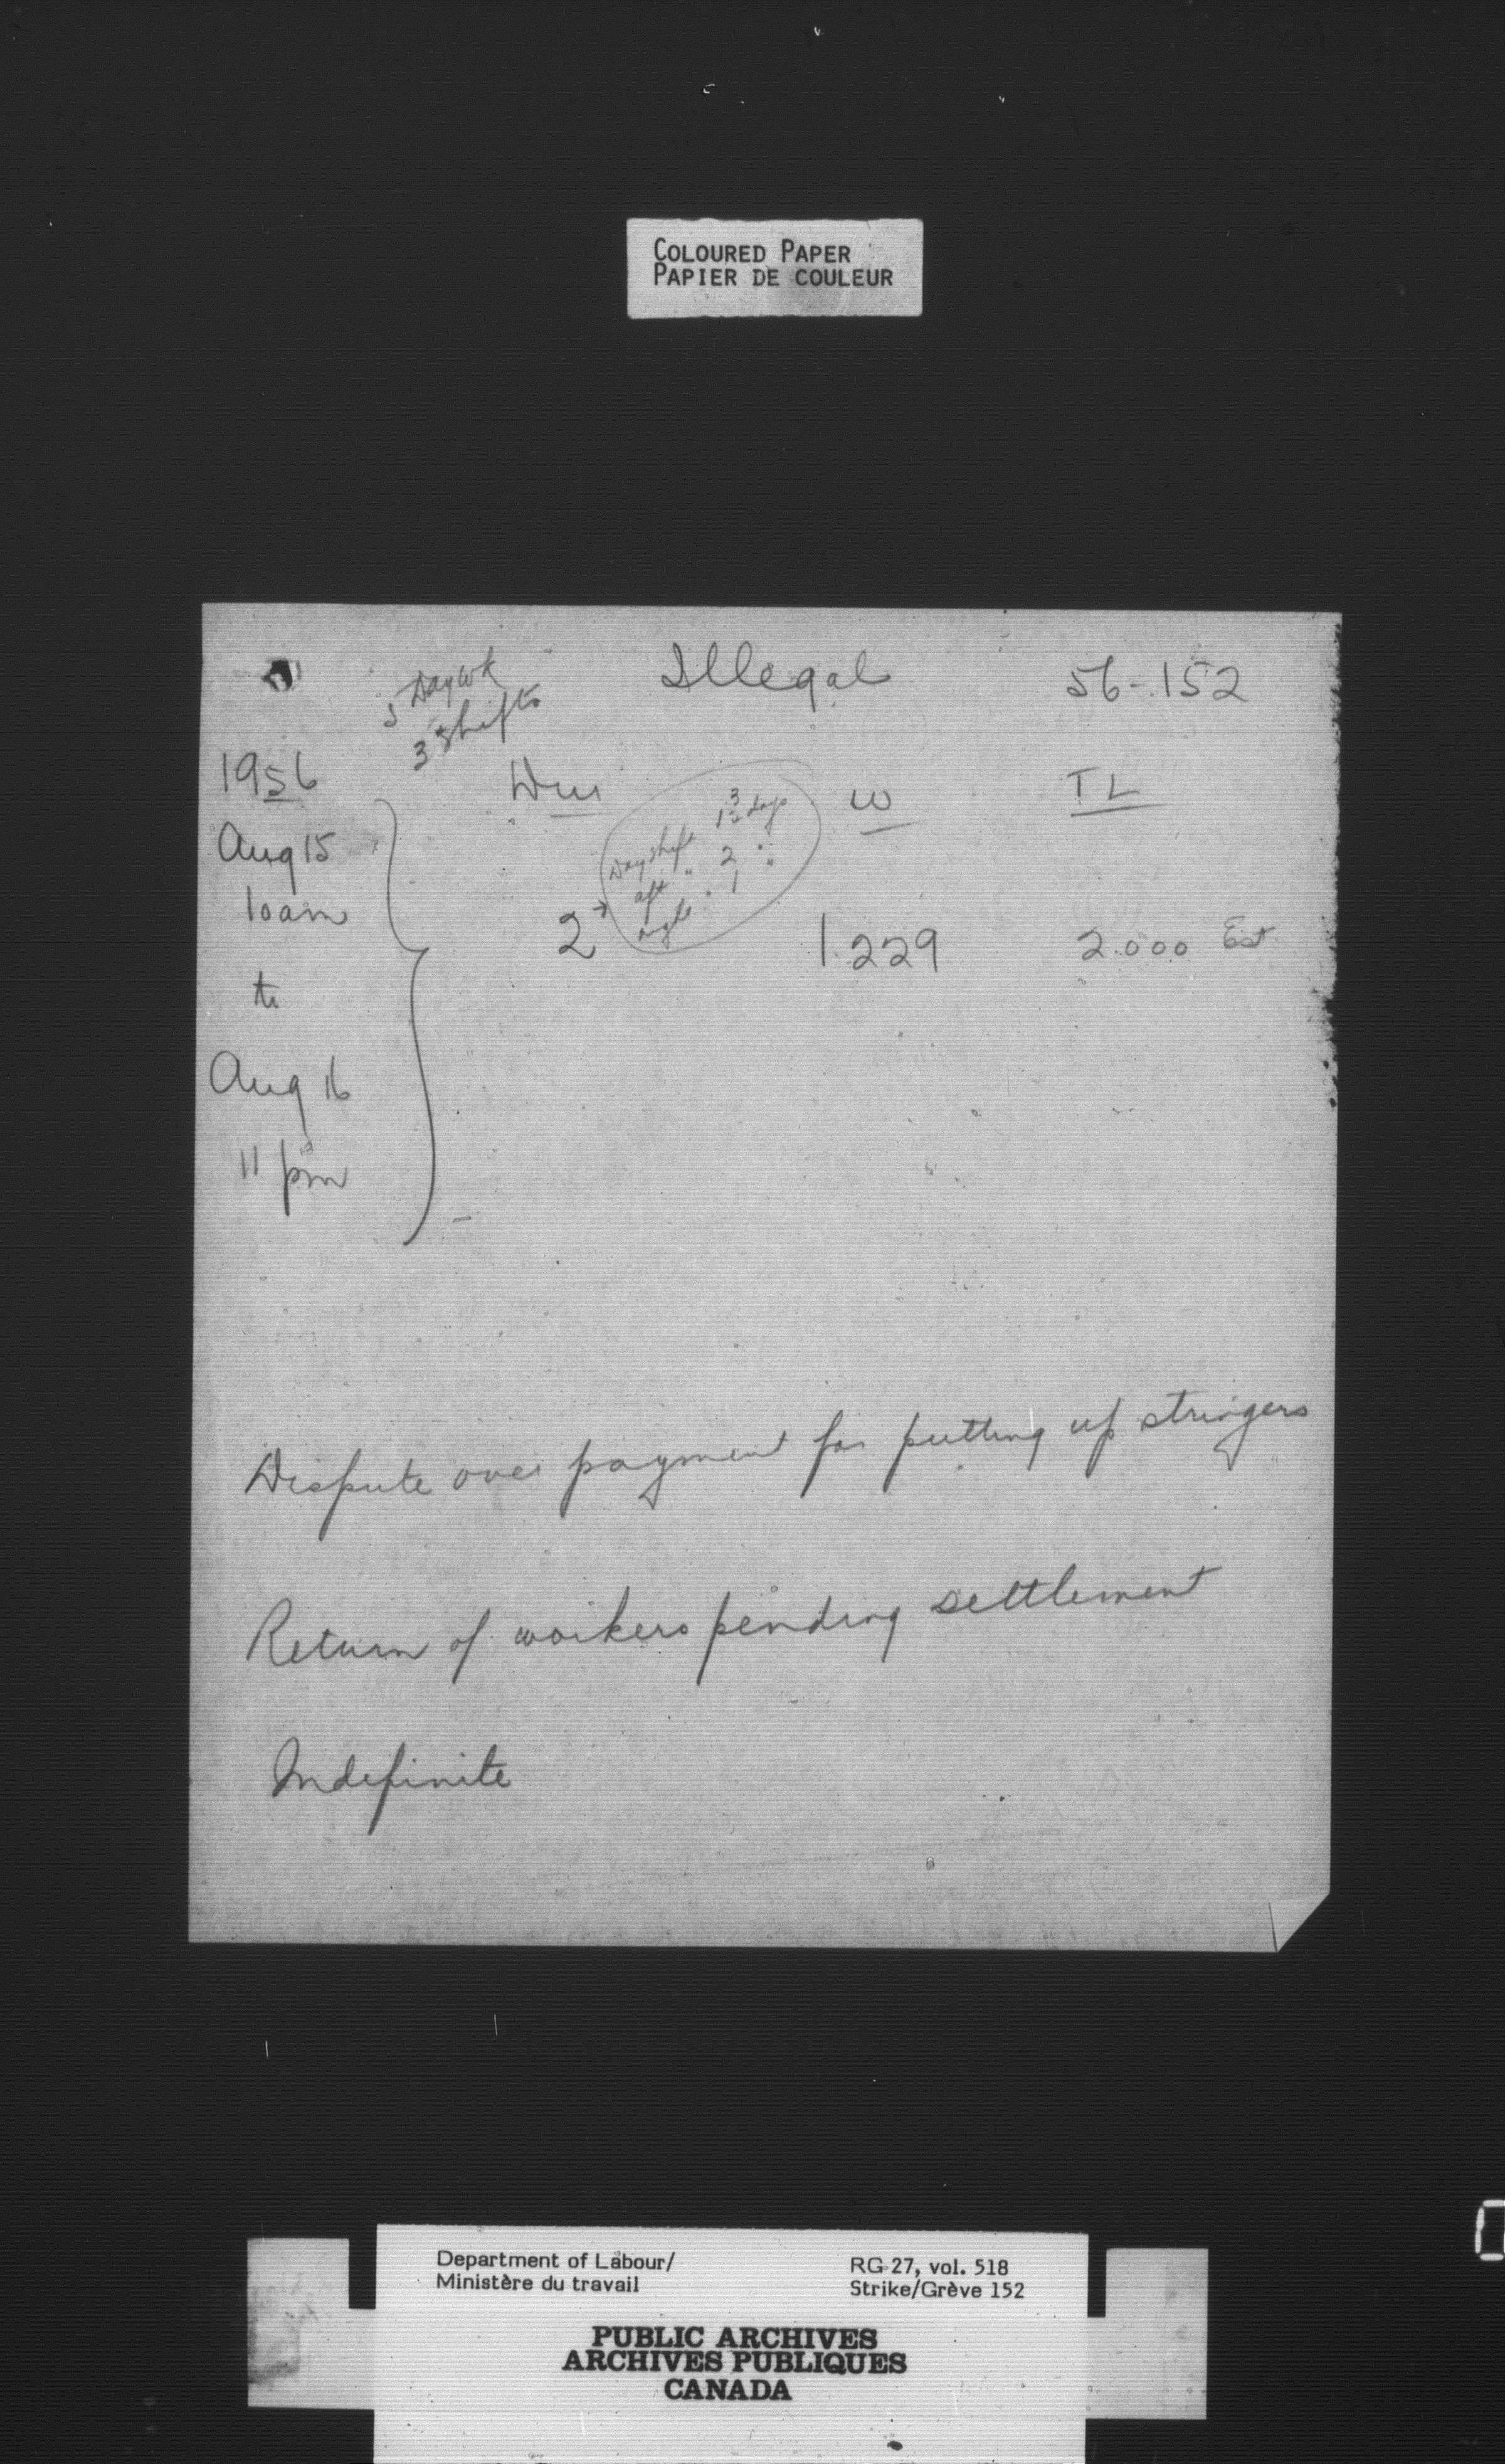 COLOURED PAPER
PAPIER DE COULEUR
5 Day wk
3 Shifts
Illegal
56-152
1956
W
TL
Aug 15
10 am
to
Aug 16
11 pm
Day shift days
aft " 2 "
night " 1 "
2
1.229
2.000 Est
Dispute over payment for putting up stringers
Return of workers pending settlement
Indefinite
Department of Labour/
Ministère du travail
RG 27, vol. 518
Strike/Grève 152
PUBLIC ARCHIVES
ARCHIVES PUBLIQUES
CANADA